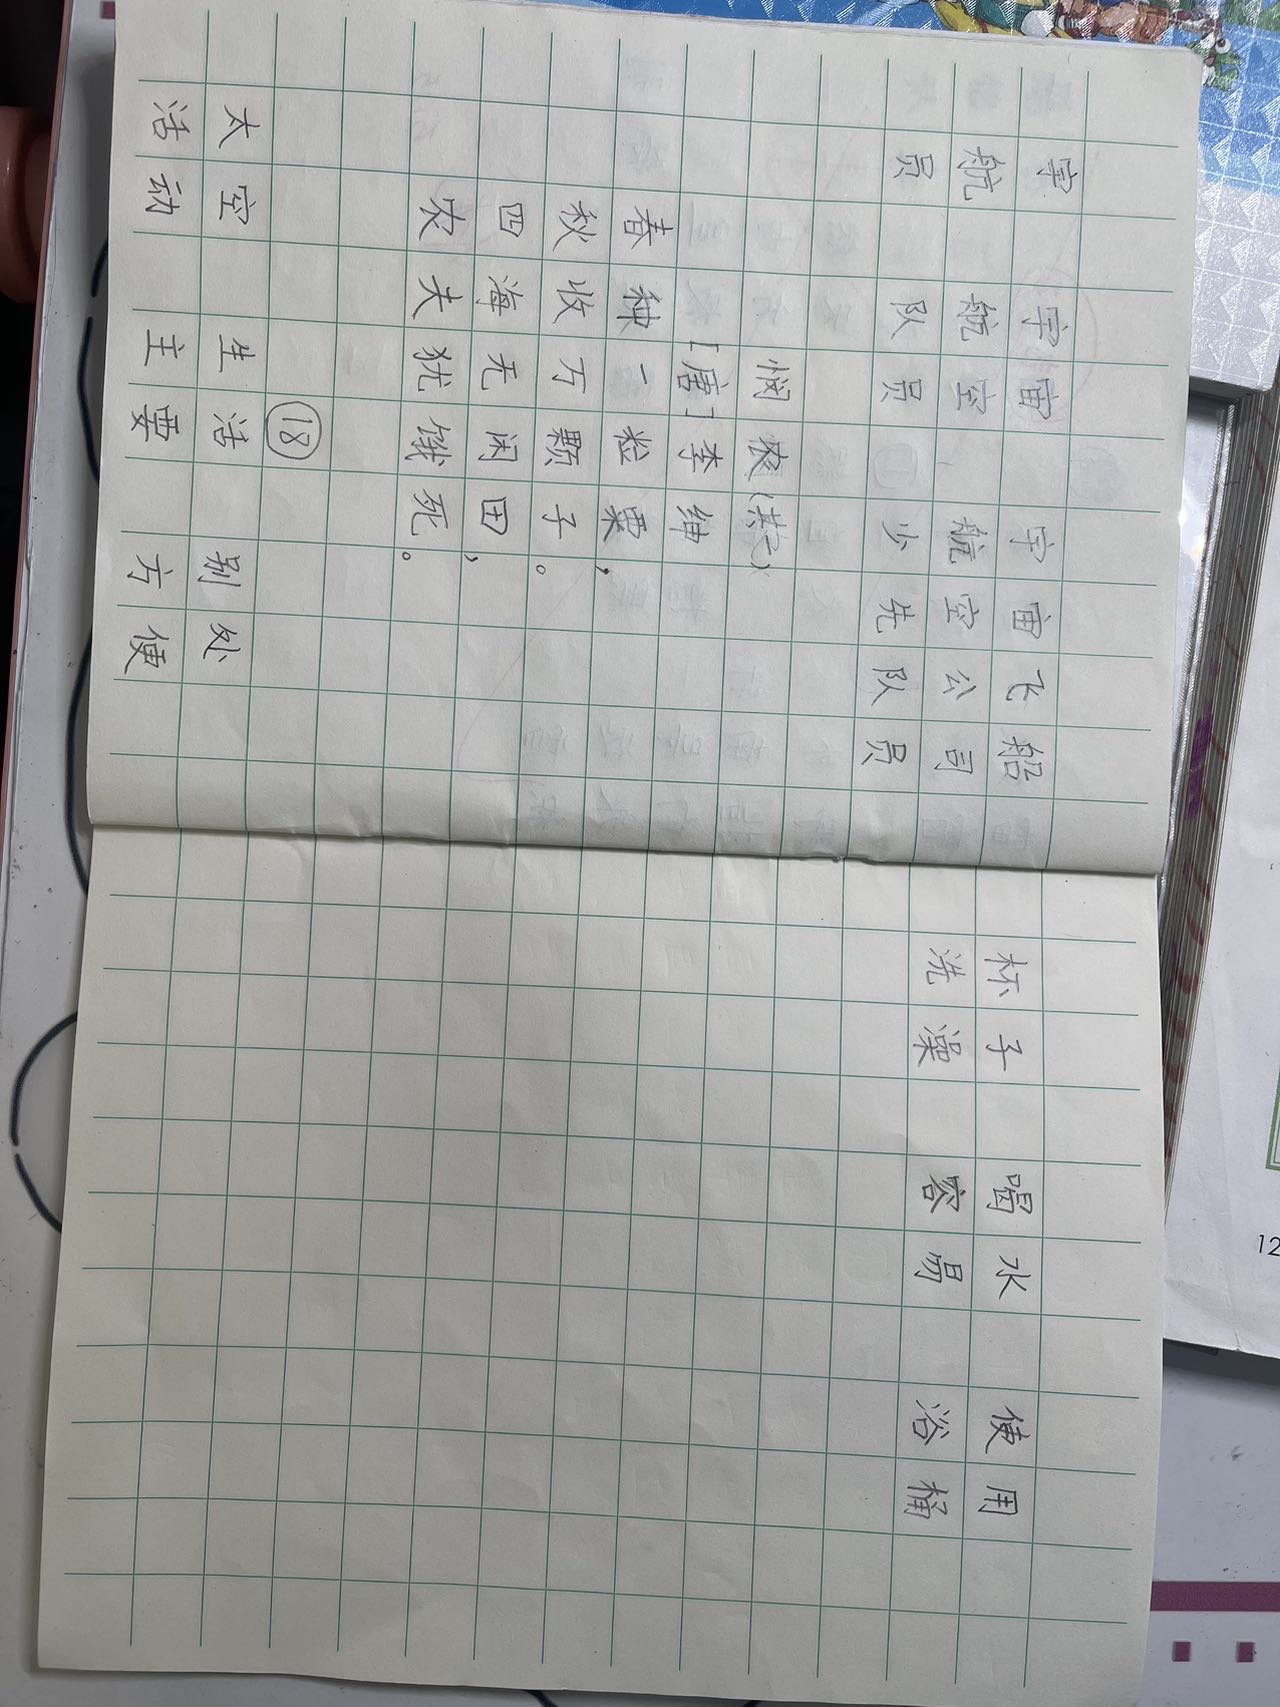 宇 宇宙 宇宙飞船
航 航空 航空公司
员 队员 少先队员
悯农(其)
[唐]李绅
春种一粒粟,
秋收万颗子。
四海无闲田,
农夫犹饿死。
18
太空 生活 别处
活动 主要 方便
杯子 喝水 使用
洗澡 容易 浴桶